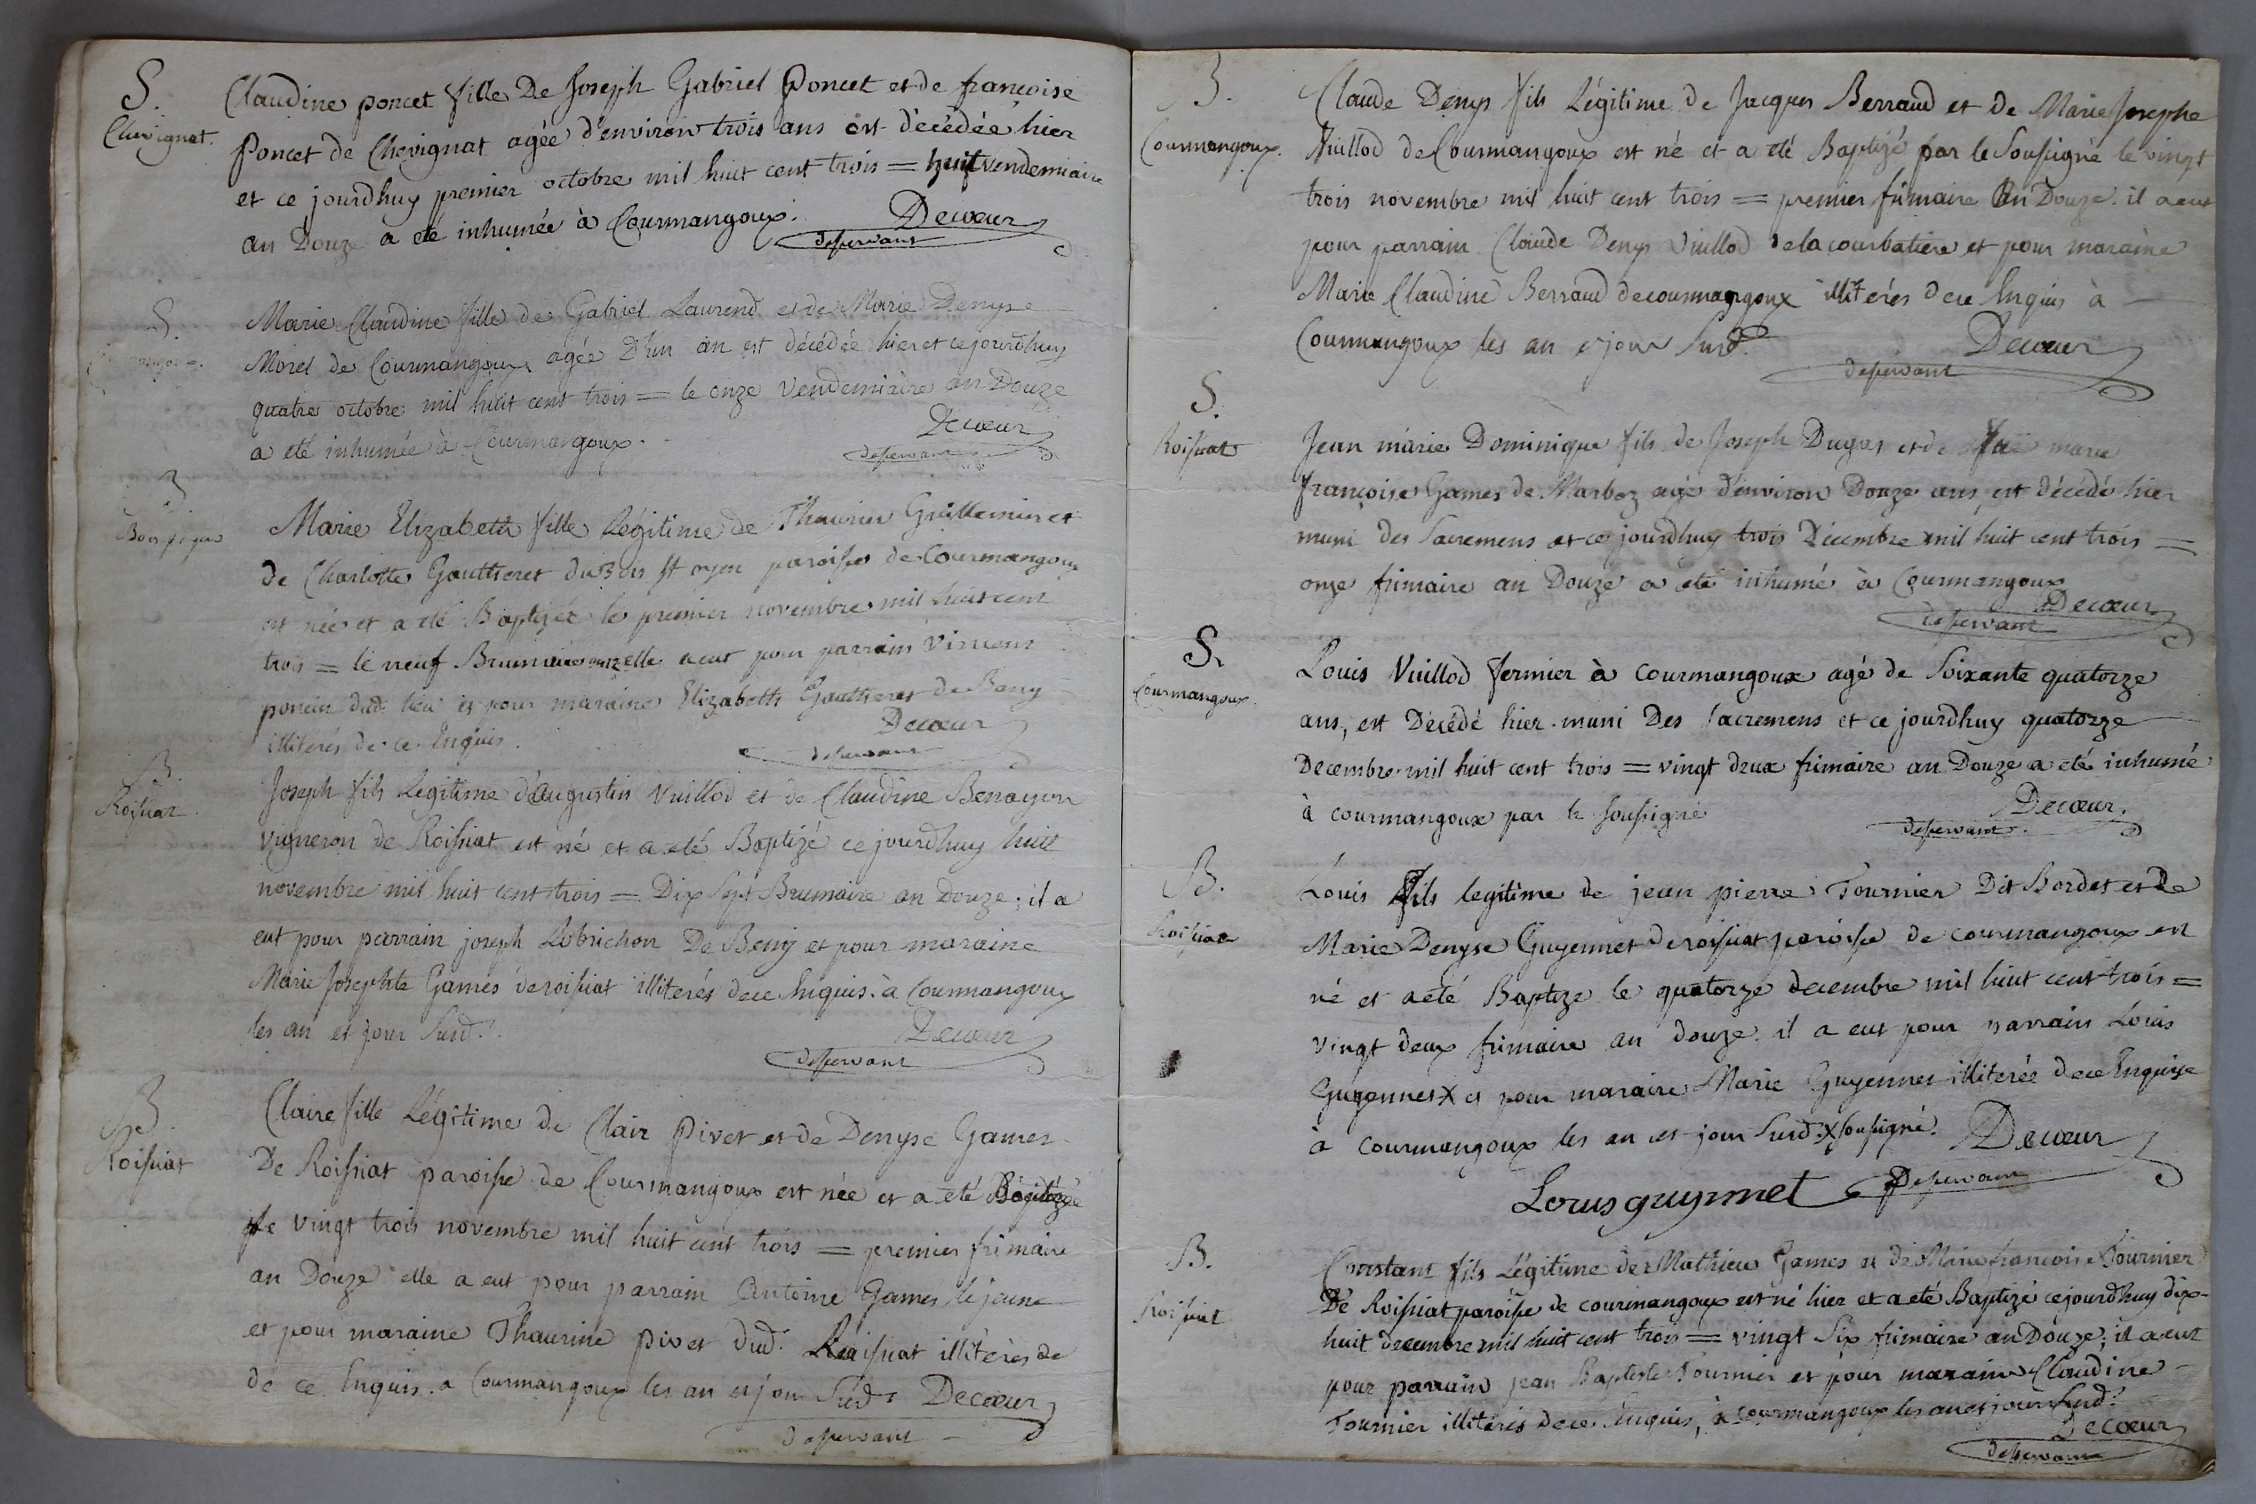 S.
Chevignat.
Claudine poncet fille De Joseph Gabriel Poncet et de françoise
Poncet de Chevignat agée d'environ trois ans est décédée hier
et ce jourdhuy premier octobre mil huit cent trois = huit vendemiaire
an Douze a été inhumée à Courmangoux.
Decoeur
desservant
S.
Marie Claudine fille de Gabriel Laurend et de Marie Denyse
Morel de Courmangoux agée D'un an est décédée hier et cejourdhuy
quatre octobre mil huit cent trois = le onze Vendemiaire an Douze
a eté inhumée à Courmangoux.
Decoeur
desservant
B
Marie Elizabeth fille Légitime de Thaurin Guillemin et
de Charlotte Gautheret du Bois St oyen paroisse de Courmangoux
est née et a eté Baptizée le premier novembre mil huit cent
trois = le neuf Brumaire an 12 elle a eut pour parrain Vincent
poncin dud. lieu et pour maraine Elizabeth Gauttheret de Beny
illiterés de ce Enquis.
Decoeur
desservant
B.
Roissiat.
Joseph fils Legitime d'augustin Vuillod et de Claudine Benayon
vigneron de Roissiat est né et a eté Baptizé ce jourdhuy huit
novembre mil huit cent trois = Dix Sept Brumaire an Douze; il a
eut pour parrain joseph Lobrichon De Beny et pour maraine
Marie Josephte Games de roissiat illiterés de ce Enquis. à Courmangoux
les an et jour Susd.
Decoeur
desservant
B.
Roissiat
Claire fille Légitime de Clair Pivet et de Denyse Games
De Roissiat paroisse de Courmangoux est née et a eté Baptizée
le vingt trois novembre mil huit cent trois = premier frimaire
an Douze elle a eut pour parrain Antoine Games le jeune
et pour maraine Thaurine pivet dud. Roissiat illiterés de
de ce Enquis. a Courmangoux les an et jour Susd.
Decoeur
desservant
B.
Courmangoux.
Claude Denys fils Légitime de Jacques Berraud et de Marie Josephe
Vuillod de Courmangoux est né et a eté Baptizé par le Soussigné le vingt
trois novembre mil huit cent trois = premier frimaire An Douze. il a eut
pour parrain Claude Denys Vuillod de la courbatiere et pour maraine
Marie Claudine Berraud de courmangoux illiterés de ce Enquis à
Courmangoux les an et jour Susd.
Decoeur
desservant
S.
Roissiat
Jean marie Dominique fils de Joseph Dugas et de marie
françoise Games de Marboz agé d'environ Douze ans, est décédé hier
muni des Sacremens et ce jourdhuy trois Décembre mil huit cent trois =
onze frimaire an Douze a eté inhumé à Courmangoux
Decoeur
desservant
S.
Courmangoux.
Louis Vuillod fermier à Courmangoux agé de Soixante quatorze
ans, est Décédé hier muni Des Sacremens et ce jourdhuy quatorze
Decembre mil huit cent trois = vingt deux frimaire an Douze a eté inhumé
à courmangoux par le Soussigné
Decoeur.
desservant.
B.
Roissiat
Louis fils legitime de jean pierre Tournier Dit Bordet et de
Marie Denyse Guyennet de roissiat paroisse de courmangoux est
né et a eté Baptize le quatorze decembre mil huit cent trois =
vingt deux frimaire an douze. il a eut pour parrain Louis
Guyennet X et pour maraine Marie Guyennet illiterée de ce Enquise
à Courmangoux les an et jour Susd. X soussigné.
Decoeur
Desservant
Louis guyennet
B.
Roissiat
Constant fils Légitime de Mathieu Games et de Marie françoise Tournier
De Roissiat paroisse de courmangoux est né hier et a eté Baptizé cejourdhuy dix-
huit decembre mil huit cent trois = vingt Six frimaire an Douze; il a eut
pour parrain jean Baptiste Tournier et pour maraine Claudine
Tournier illiterés de ce Enquis, à courmangoux les an et jour Susd.
Decoeur
desservant